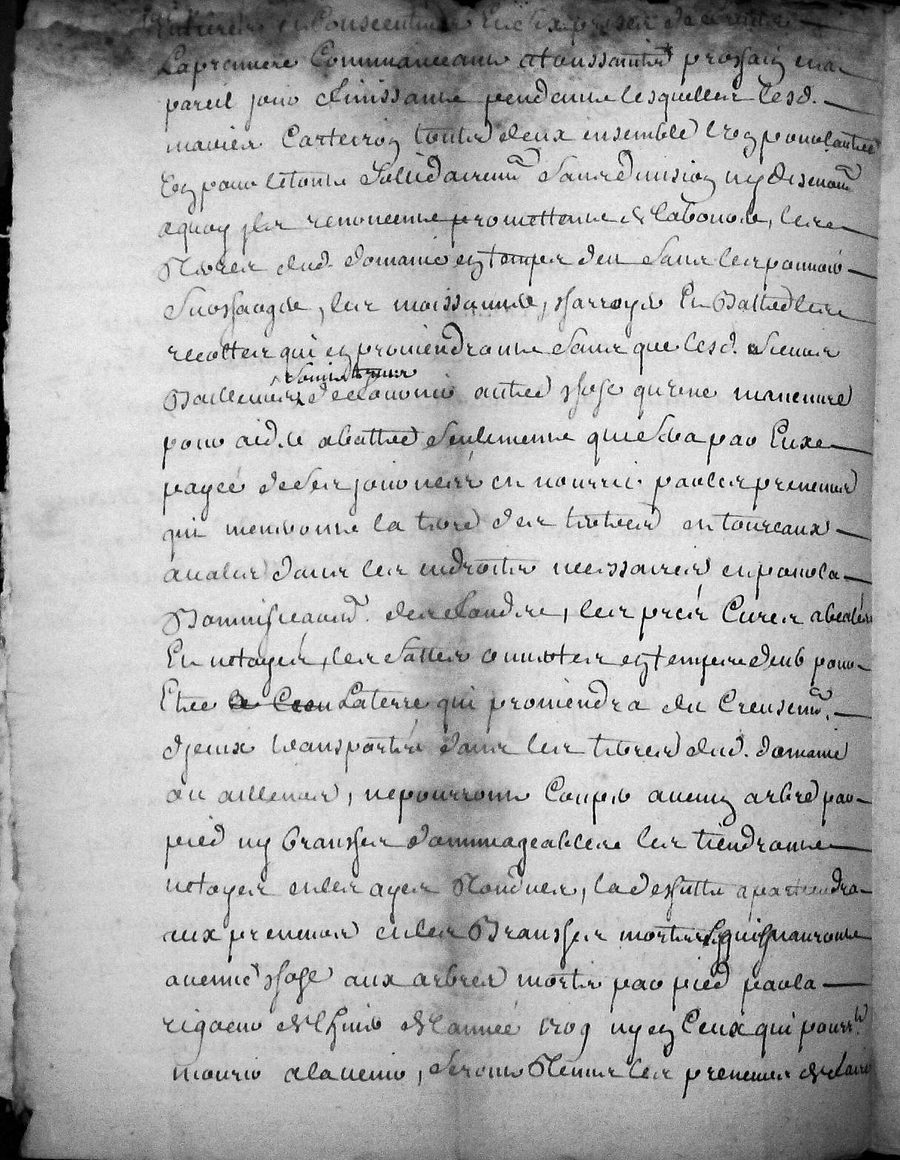 Entieres et Consecutives
La premiere Commanceant a toussaintz prossain en a
pareil jour finissant pendant lesquelles lesd.
mariés Carterron touts deux ensemble l'un pour l'autre
Et pour le tout Solidairement Sans division ny discution
a quoy ils renoncent promettent de labourer, les
terres dud. domaine en temps deu Sans les pouvoir
Surchargé, les moissonner, charroyé Et Battre les
recoltes qui en proviendront Sans que lesd. Sieurs
Bailleurs Soint tenus de fournir autre chose qu'une maneuvre
pour aider a battre Seulement que Sera par Eux
payée de Ses journées et nourrie par les preneurs
qui meneront la terre des tertres et toureaux
a valer dans les endroits necissaires et pour la
Bonnificaon. des fondre, les prés Curer a bealer
Et netoyer, les fosses ouvertes en temps deub pour
Etre La terre qui proviendra du Creusemt.
d'jeux transportée dans les terres dud. domaine
ou ailleurs, ne pourront Couper aucun arbre par
pied ny branches dommageables les tiendront
netoyer et les ayes Tondues, la desfutte apartiendra
aux preneurs et les Branches mortes qui n'auront
aucune chose aux arbres morts par pied par la
rigueur de l'hiver de l'année 1709 ny en Ceux qui pourrt
mourir a l'avenir, Seront Tenus les preneurs de faire